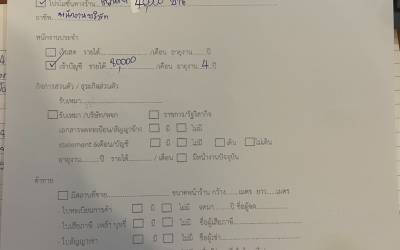 ☑ โปรโมชั่นทางร้าน 40,000 บาท
อาชีพ พนักงานบริษัท
พนักงานประจำ
☐ เงินสด รายได้ /เดือน อายุงาน ปี
☑ เข้าบัญชี รายได้ 80,000 /เดือน อายุงาน 4 ปี
กิจการส่วนตัว / ธุรกิจส่วนตัว
รับเหมา
☐ รับเหมา /บริษัท/หจก ☐ ราชการ/รัฐวิสาหกิจ
เอกสารจดทะเบียน/สัญญาจ้าง ☐ มี ☐ ไม่มี
statement 6เดือน/บัญชี ☐ มี ☐ ไม่มี ☐ เดิน ☐ ไม่เดิน
อายุงาน ปี รายได้ / เดือน ☐ มีหน้างานปัจจุบัน
ค้าขาย
☐ มีสถานที่ขาย ขนาดหน้าร้าน กว้าง เมตร ยาว เมตร
ใบทะเบียนการค้า ☐ มี ☐ ไม่มี จดมา ปี ชื่อผู้จด
ใบเสียภาษี เหล้า บุหรี่ ☐ มี ☐ ไม่มี ชื่อผู้เสียภาษี
ใบสัญญาเช่า ☐ มี ☐ ไม่มี ชื่อผู้เช่า